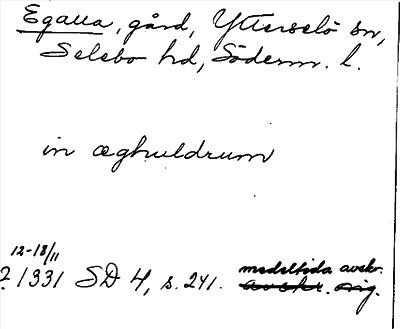 Egalla, gård, Ytterselö sn,
Selebo hd, Söderm. l.
in æghuldrum
12-18/11
? 1331 SD 4, s. 241. medeltida avskr.
avskr. orig.